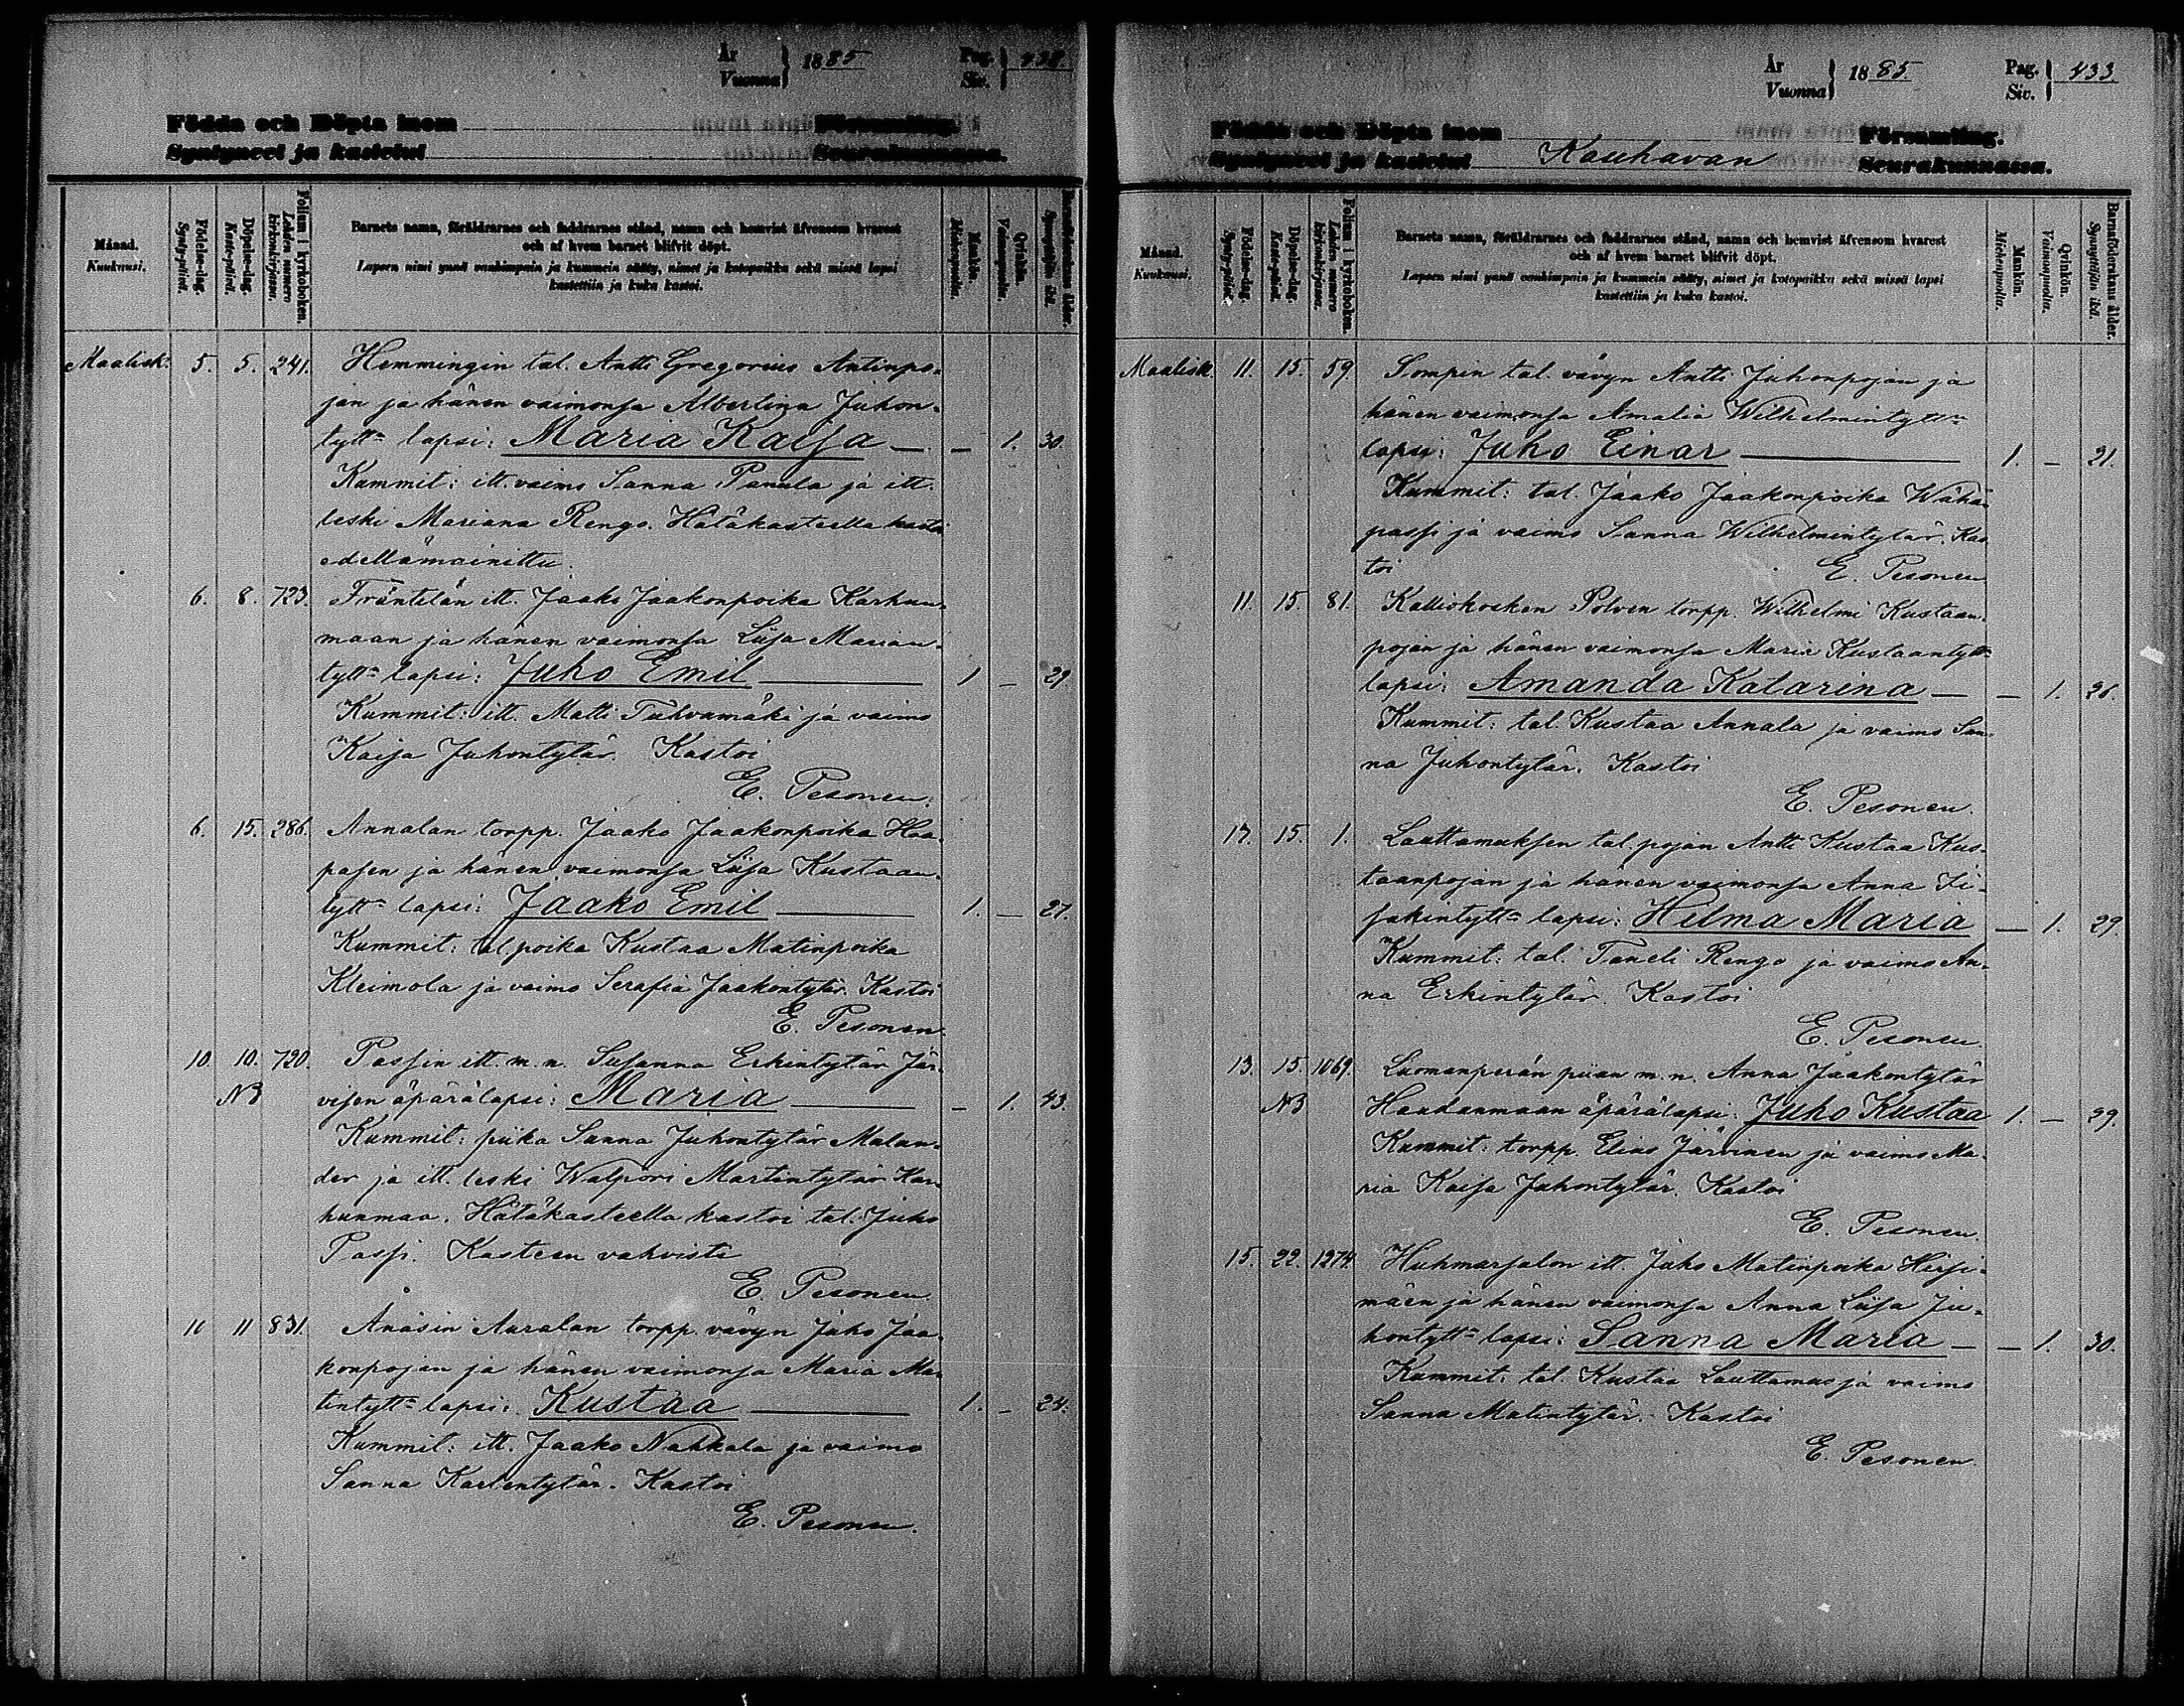 År
Vuonna } 1885
Pag.
Siv. } 432.
Födda och Döpta inom Församling.
Syntyneet ja kastetut Seurakunnassa.
Månad.
Kuukausi.
Födelse-dag.
Synty-päivä.
Döpelse-dag.
Kaste-päivä.
Folium i kyrkoboken.
Lehden numero kirkonkirjassa.
Barnets namn, föräldrarnes och faddrarnes stånd, namn och hemvist äfvensom hvarest
och af hvem barnet blifvit döpt.
Lapsen nimi ynnä vanhimpain ja kummein sääty, nimet ja kotopaikka sekä missä lapsi
kastettiin ja kuka kastoi.
Mankön.
Miehenpuolta.
Qvinkön.
Vaimonpuolta.
Barnaföderskans ålder.
Synnyttäjän ikä.
Maalisk. 5. 5. 241. Hemmingin tal. Antti Gregorius Antinpo-
jan ja hänen vaimonsa Albertina Juhon-
tytt:n lapsi: Maria Kaisa — — 1. 30.
Kummit: itt. vaimo Sanna Panula ja itt.
leski Mariana Rengo. Hätäkasteella kastoi
edellämainittu.
6. 8. 723. Fräntilän itt. Jaako Jaakonpoika Karhun-
maan ja hänen vaimonsa Liisa Marian-
tytt:n lapsi: Juho Emil — 1 — 29.
Kummit: itt. Matti Tuhvamäki ja vaimo
Kaisa Juhontytär. Kastoi
E. Pesonen.
6. 15. 286. Annalan torpp. Jaako Jaakonpoika Haa-
pasen ja hänen vaimonsa Liisa Kustaan-
tytt:n lapsi: Jaako Emil — 1. — 27.
Kummit: tal. poika Kustaa Matinpoika
Kleimola ja vaimo Serafia Jaakontytär. Kastoi
E. Pesonen.
10. 10. 720. Passin itt. m. n. Susanna Erkintytär Jär-
NB visen äpärälapsi: Maria — — 1. 43.
Kummit: piika Sanna Juhontytär Malan-
der ja itt. leski Walpori Martintytär Kar-
hunmaa. Hätäkasteella kastoi tal. Juho
Passi. Kasteen vahvisti
E. Pesonen.
10 11 831. Änäsin Auralan torpp. vävyn Juho Jaa-
konpojan ja hänen vaimonsa Maria Ma-
tintytt:n lapsi: Kustaa — 1. — 24.
Kummit: itt. Jaako Nahkala ja vaimo
Sanna Karlentytär. Kastoi
E. Pesonen.
År
Vuonna } 1885.
Pag.
Siv. } 433
Födda och Döpta inom Församling.
Syntyneet ja kastetut Kauhavan Seurakunnassa.
Månad.
Kuukausi.
Födelse-dag.
Synty-päivä.
Döpelse-dag.
Kaste-päivä.
Folium i kyrkoboken.
Lehden numero kirkonkirjassa.
Barnets namn, föräldrarnes och faddrarnes stånd, namn och hemvist äfvensom hvarest
och af hvem barnet blifvit döpt.
Lapsen nimi ynnä vanhimpain ja kummein sääty, nimet ja kotopaikka sekä missä lapsi
kastettiin ja kuka kastoi.
Mankön.
Miehenpuolta.
Qvinkön.
Vaimonpuolta.
Barnaföderskans ålder.
Synnyttäjän ikä.
Maalisk. 11. 15. 59. Sompin tal. vävyn Antti Juhonpojan ja
hänen vaimonsa Amalia Wilhelmintytt:n
lapsi: Juho Einar — 1. — 21.
Kummit: tal. Jaako Jaakonpoika Wähä-
passi ja vaimo Sanna Wilhelmintytär. Kas-
toi E. Pesonen
11. 15. 81. Kalliokosken Polven torpp. Wilhelmi Kustaan-
pojan ja hänen vaimonsa Maria Kustaantytt:n
lapsi: Amanda Katarina — — 1. 26.
Kummit: tal. Kustaa Annala ja vaimo San-
na Juhontytär. Kastoi
E. Pesonen.
17. 15. 1. Lauttamuksen tal. pojan Antti Kustaa Kus-
taanpojan ja hänen vaimonsa Anna Ii-
sakintytt:n lapsi: Hilma Maria — 1. 29.
Kummit: tal. Taneli Rengo ja vaimo An-
na Erkintytär. Kastoi
E. Pesonen
13. 15. 1069. Luomanperän piian m. n. Anna Jaakontytär
NB Haudanmaan äpärälapsi: Juho Kustaa 1. — 29.
Kummit: torpp. Elias Järvinen ja vaimo Ma-
ria Kaisa Juhontytär. Kastoi
E. Pesonen.
15. 22. 1274. Huhmarsalon itt. Juho Matinpoika Hirsi-
mäen ja hänen vaimonsa Anna Liisa Ju-
hontytt:n lapsi: Sanna Maria — — 1. 30.
Kummit: tal. Kustaa Lauttamus ja vaimo
Sanna Matintytär. Kastoi
E. Pesonen.